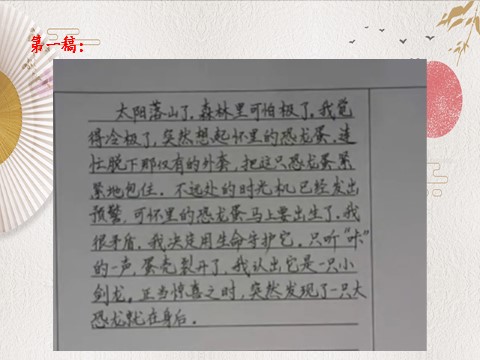 第一稿：
太阳落山了，森林里可怕极了，我觉
得冷极了，突然想起怀里的恐龙蛋，连
忙脱下那仅有的外套，把这只恐龙蛋紧
紧地包住。不远处的时光机已经发出
预警，可怀里的恐龙蛋马上要出生了，我
很矛盾。我决定用生命守护它。只听“咔”
的一声，蛋壳裂开了，我认出它是一只小
剑龙。正当惊喜之时，突然发现了一只大
恐龙就在身后。